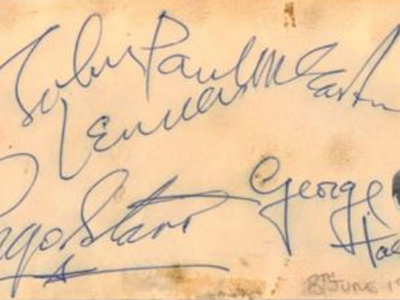 John Paul McCartn
Lennon
ngo Starr George
Ha
8TH JUNE 19